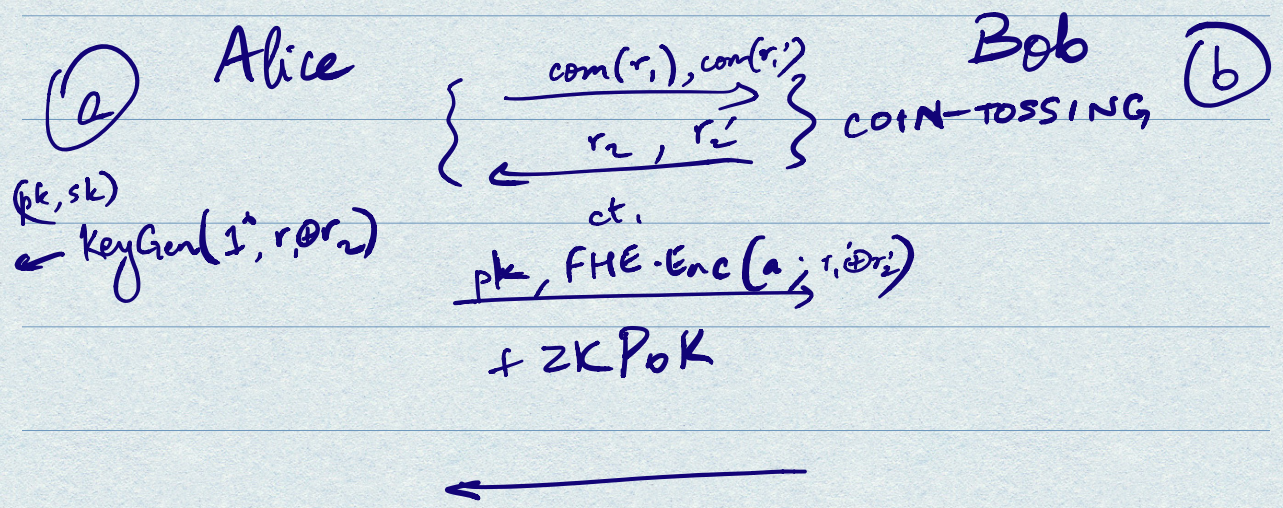 Alice
Bob
a
b
com(r₁), com(r₁')
COIN-TOSSING
r₂, r₂'
(pk, sk)
← KeyGen(1^λ, r₁⊕r₂)
ct₁
pk, FHE.Enc(a; r₁'⊕r₂')
+ ZKPoK